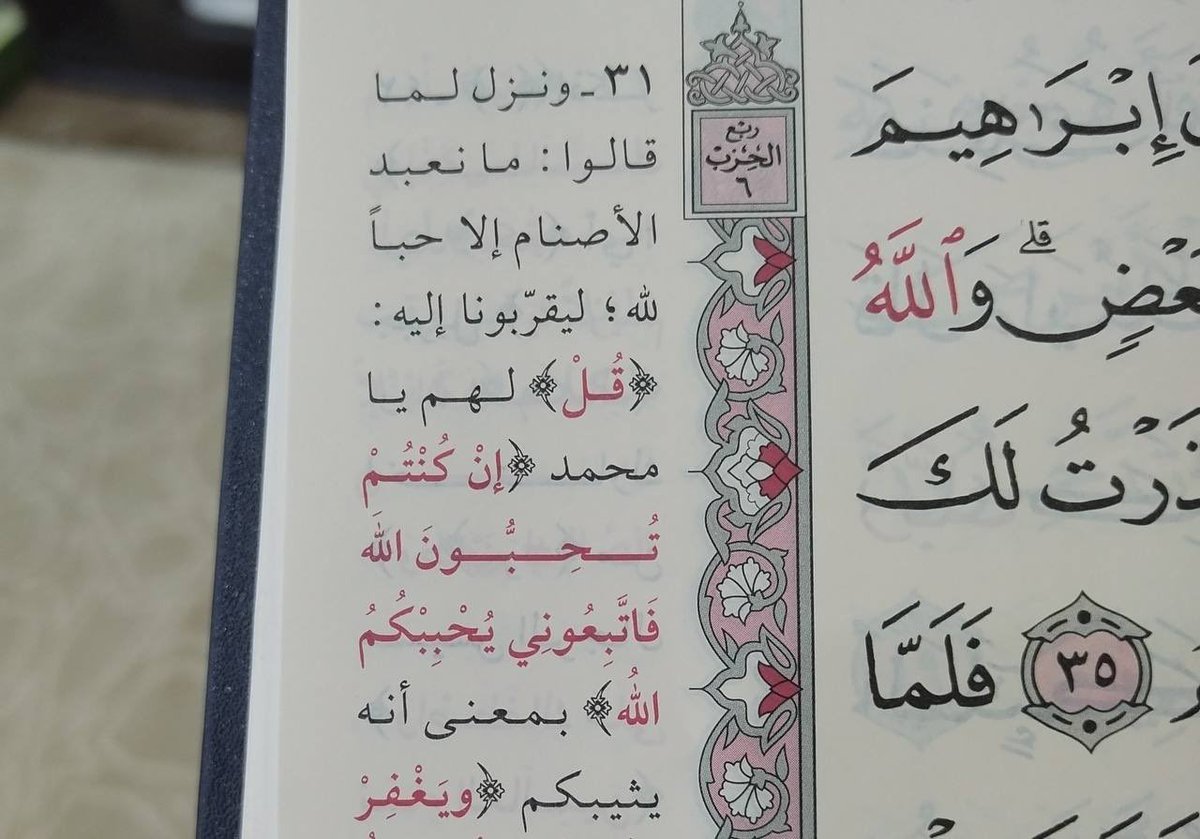 إِبْرَٰهِيمَ
بَعْضٍ ۗ وَٱللَّهُ
نَذَرْتُ لَكَ
٣٥ فَلَمَّا
ربع
الحِزب
٦
٣١ - ونزل لما
قالوا: ما نعبد
الأصنام إلا حباً
لله؛ ليقرّبونا إليه:
﴿قُلْ﴾ لهم يا
محمد ﴿إِنْ كُنْتُمْ
تُحِبُّونَ اللهَ
فَاتَّبِعُونِي يُحْبِبْكُمُ
اللهُ﴾ بمعنى أنه
يثيبكم ﴿ويَغْفِرْ